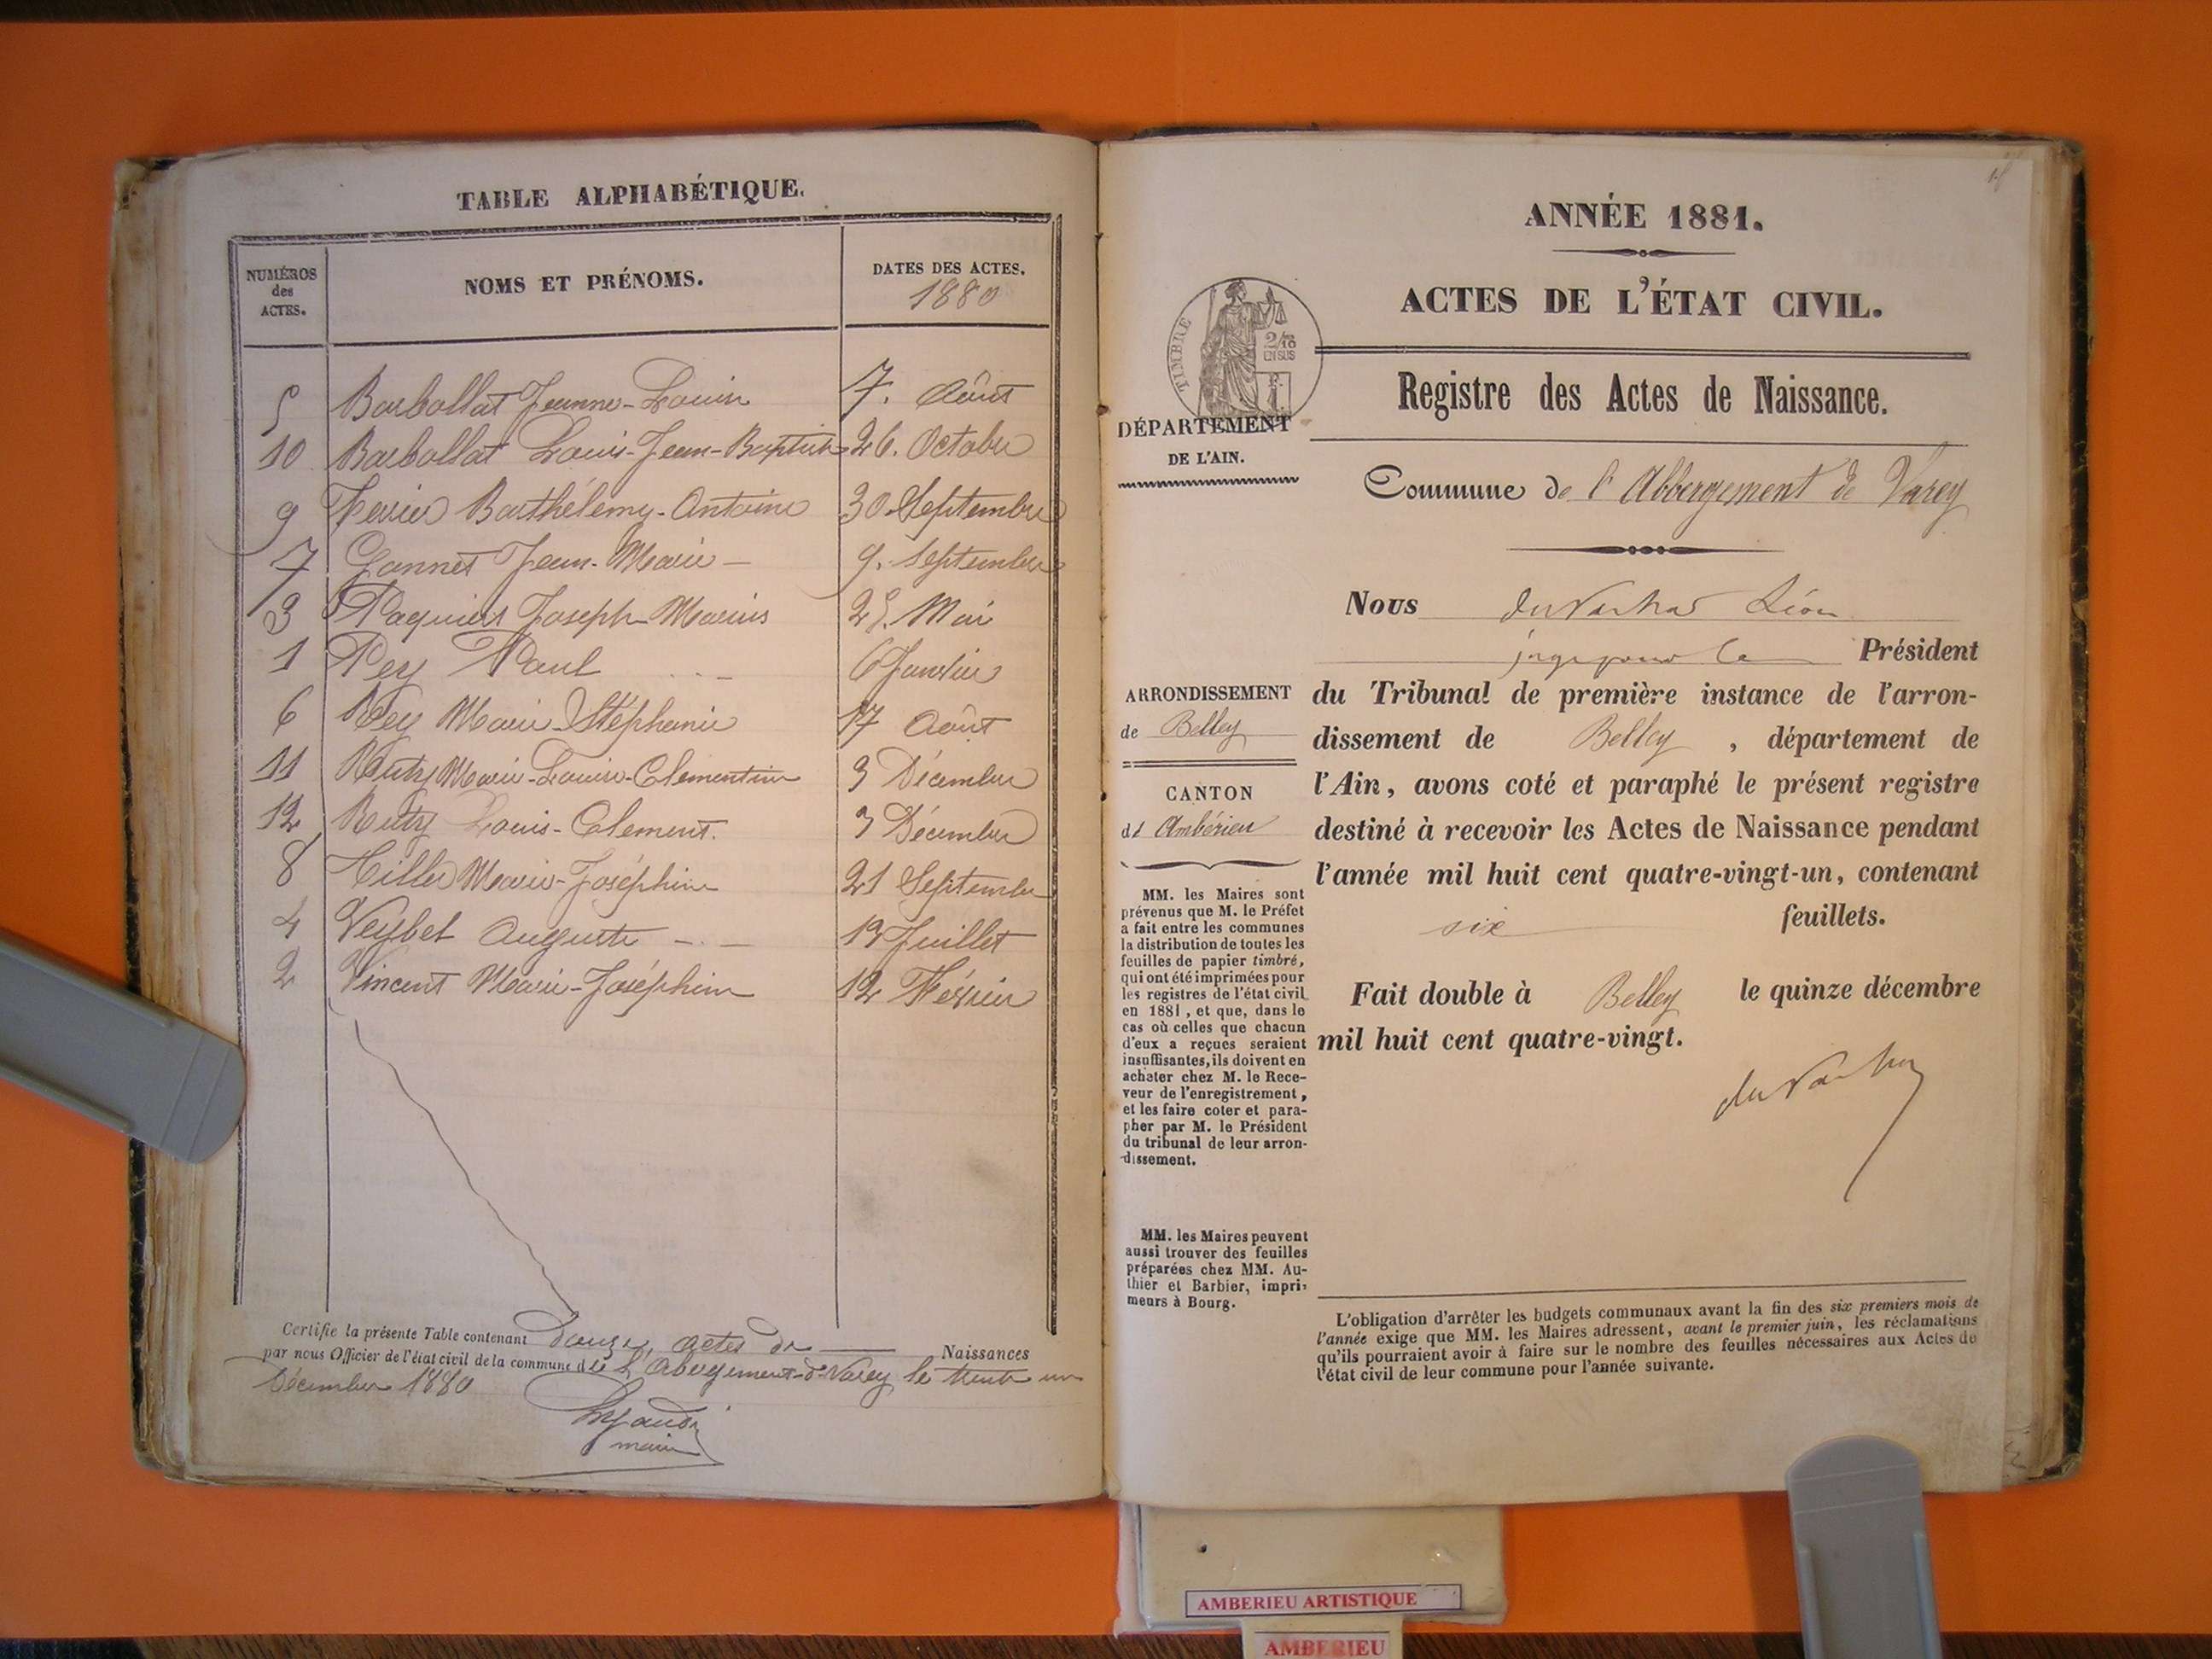 TABLE ALPHABÉTIQUE.
NUMÉROS
des
ACTES.
NOMS ET PRÉNOMS.
DATES DES ACTES.
1880
5 Barbollat Jeanne-Louise 7. Août
10 Barbollat Louis-Jean-Baptiste 26. Octobre
9 Ferrier Barthélemy-Antoine 30 Septembre
7 Gonnet Jean-Marie - 9. Septembre
3 Paquier Joseph Marius 25. Mai
1 Rey Paul 6 Janvier
6 Rey Marie-Stéphanie 17 Août
11 Marie-Louise-Clementine 3 Décembre
12 Louis-Clement. 3 Décembre
8 Tiller Marie-Joséphine 21 Septembre
4 Veybet Auguste 13 Juillet
2 Vincent Marie-Joséphine 12 Février
Certifie la présente Table contenant Douze actes de Naissances
par nous Officier de l'état civil de la commune de L'Abergement-de-Varey le trente un
Décembre 1880
maire
ANNÉE 1881.
ACTES DE L'ÉTAT CIVIL.
TIMBRE
2/10
EN SUS
Registre des Actes de Naissance.
DÉPARTEMENT
DE L'AIN.
Commune de l'Abbergement de Varey
Nous Léon
juge pour le Président
du Tribunal de première instance de l'arron-
dissement de Belley, département de
l'Ain, avons coté et paraphé le présent registre
destiné à recevoir les Actes de Naissance pendant
l'année mil huit cent quatre-vingt-un, contenant
six feuillets.
Fait double à Belley le quinze décembre
mil huit cent quatre-vingt.
ARRONDISSEMENT
de Belley
CANTON
d' Ambérieu
MM. les Maires sont
prévenus que M. le Préfet
a fait entre les communes
la distribution de toutes les
feuilles de papier timbré,
qui ont été imprimées pour
les registres de l'état civil
en 1881, et que, dans le
cas où celles que chacun
d'eux a reçues seraient
insuffisantes, ils doivent en
acheter chez M. le Rece-
veur de l'enregistrement,
et les faire coter et para-
pher par M. le Président
du tribunal de leur arron-
dissement.
MM. les Maires peuvent
aussi trouver des feuilles
préparées chez MM. Au-
thier et Barbier, impri-
meurs à Bourg.
L'obligation d'arrêter les budgets communaux avant la fin des six premiers mois de
l'année exige que MM. les Maires adressent, avant le premier juin, les réclamations
qu'ils pourraient avoir à faire sur le nombre des feuilles nécessaires aux Actes de
l'état civil de leur commune pour l'année suivante.
AMBERIEU ARTISTIQUE
AMBERIEU